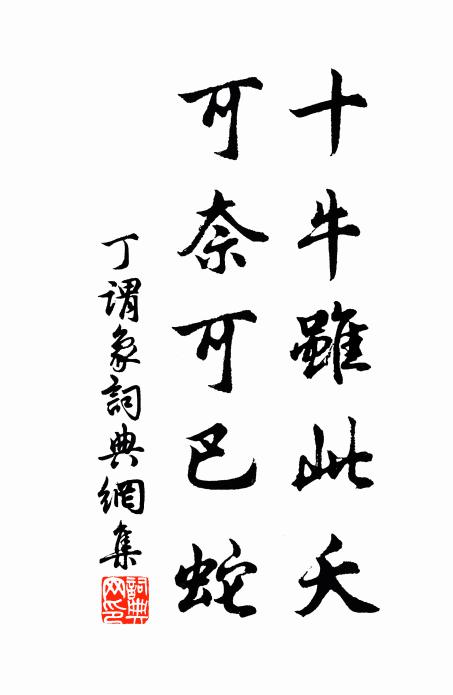 十牛雖此夭
可奈可巴蛇
丁謂象詞典網集
詞典
网印